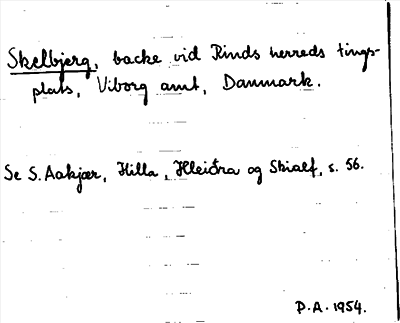 Skelbjerg, backe vid Rinds herreds tings-
plats, Viborg amt, Danmark.
Se S. Aakjær, Hilla, Hleiðra og Skialf, s. 56.
P.A. 1954.